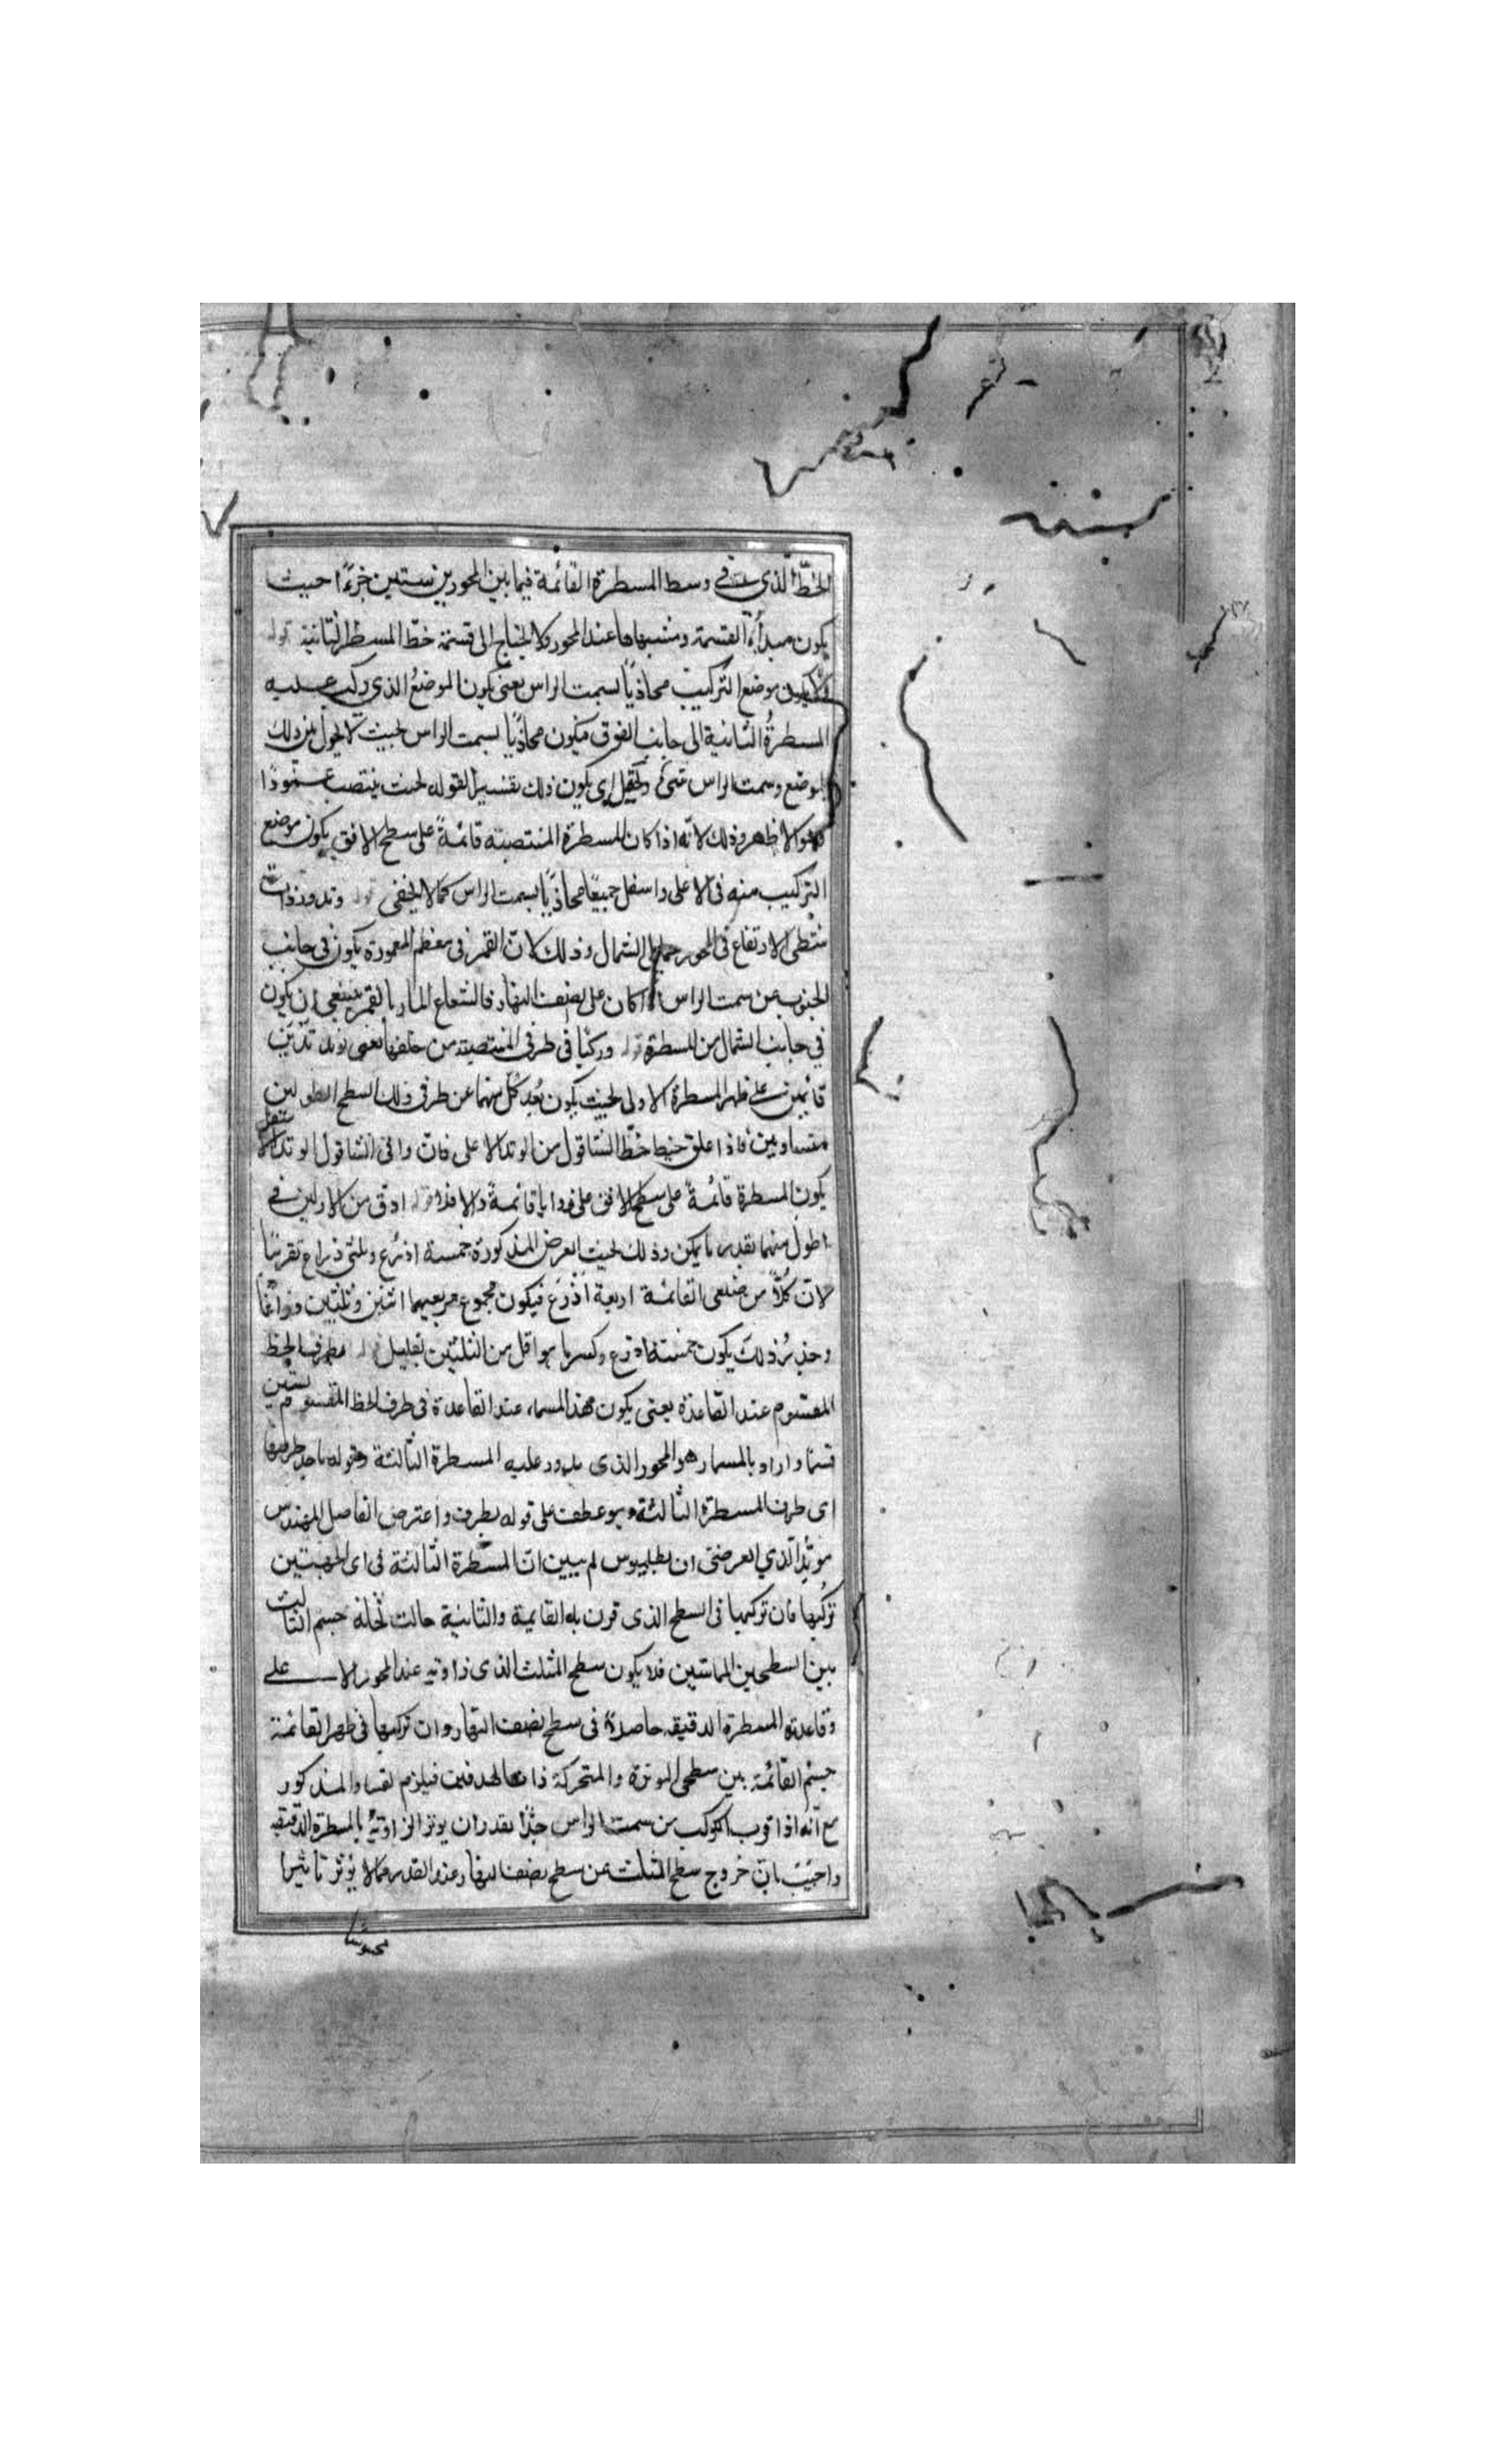 الخطّ الذى فى وسط المسطرة القائمة فيما بين المحورين ستين جزءًا حيث
يكون مبدأ القسمة ومنتهاها عند المحور ولا يحتاج الى قسمة خطّ المسطرة الثانية قوله
ولا يكون موضع التركيب محاذيًا لسمت الراس يعنى يكون الموضعُ الذى ركب عليه
المسطرةُ الثانية الى جانب الفوق فيكون محاذيًا لسمت الراس بحيث لا يحول بين ذلك
الموضع وسمت الراس شىء ويحتمل ان يكون ذلك تفسيرا لقوله بحيث ينتصب عمودًا
وهو الاظهر وذلك لانّه اذا كان المسطرة المنتصبته قائمةً على سطح الافق يكون موضع
التركيب منه فى الاعلى واسفل جميعًا محاذيًا لسمت الراس كما لا يخفى قوله وتدور ذات
شظى الارتفاع فى المحور الى الشمال وذلك لانّ القمر فى معظم المعمورة يكون فى جانب
الجنوب عن سمت الراس اذا كان على نصف النهار فالشعاع المار بالقمر ينبغى ان يكون
فى جانب الشمال من المسطرة قوله وركبا فى طرفى المنتصبة من خلفها يعنى وتدين
قائمين على ظهر المسطرة الاولى بحيث يكون بُعد كلّ منهما عن طرفى ذلك السطح الطولين
متساويين فاذا علق خيط الشاقول من الوتد الاعلى فان وافى الشاقول الوتد الاسفل
يكون المسطرة قائمةً على سطح الافق على زوايا قائمة والا فلا قوله ادق من الاولين فى
اطول منهما بقدر ما يمكن وذلك بحيث العرض المذكورة خمسة اذرُع وثلثى ذراع تقريبًا
لانّ كُلاًّ من ضلعى القائمة اربعة اَذْرُع فيكون مجموع مربعيهما اثنين وثلثين ذراعًا
وجذرُ ذلك يكون خمسة اذرع وكسر ما هو اقل من الثلثين بقليل قوله بطرف الخط
المقسوم عند القاعدة يعنى يكون هذا المسمار عند القاعدة فى طرف الخط المقسوم بستين
قسمًا واراد بالمسمار هو المحور الذى يدور عليه المسطرة الثالثة وقوله باحد طرفيها
اى طرف المسطرة الثالثة وهو عطف على قوله بطرف واعترض الفاضل المهندس
مؤيّد الدّين العرضى ان بطلميوس لم يبين انّ المسطرة الثالثة فى اى الجهتين
تركيبها فان تركيبها فى السطح الذى قرن به القايمة والثانية حالت ثخانة جسم الثالث
بين السطحين المماسّين فلا يكون سطح المثلث الذى زاويته عند المحور الاعلى
وقاعدته المسطرة الدقيقه حاصلاً فى سطح نصف النهار وان تركيبها فى ظهر القائمة
جسم القائمة بين سطحى الموترة والمتحركة ذات الهدفين فيلزم الفساد المذكور
مع انّه اذا قرب الكوكب من سمت الراس جدًّا بقدر ان يوتر الزاويةُ بالمسطرة الدقيقه
واجيب بانّ خروج سطح المثلث عن سطح نصف النهار بهذا القدر مما لا يؤثر تاثيرا
محسوسا